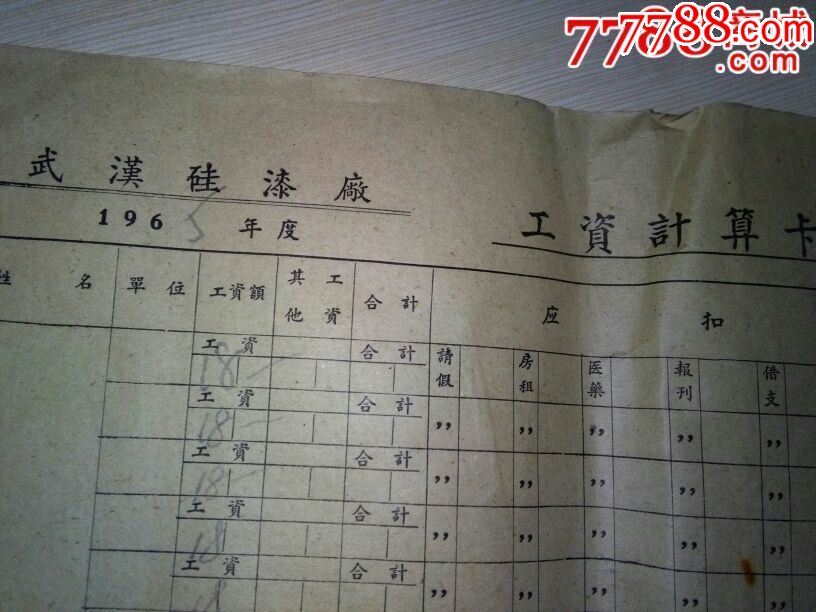 77788.com
7788商城
武漢硅漆廠
1965年度
工資計算卡
姓名 單位 工資額 其他工資 合計 应扣
工資 合計 請假 房租 医藥 報刊 借支
18—
工資 合計 〃 〃 〃 〃 〃
18—
工資 合計 〃 〃 〃 〃 〃
18—
工資 合計 〃 〃 〃 〃 〃
18
工資 合計 〃 〃 〃 〃 〃
18